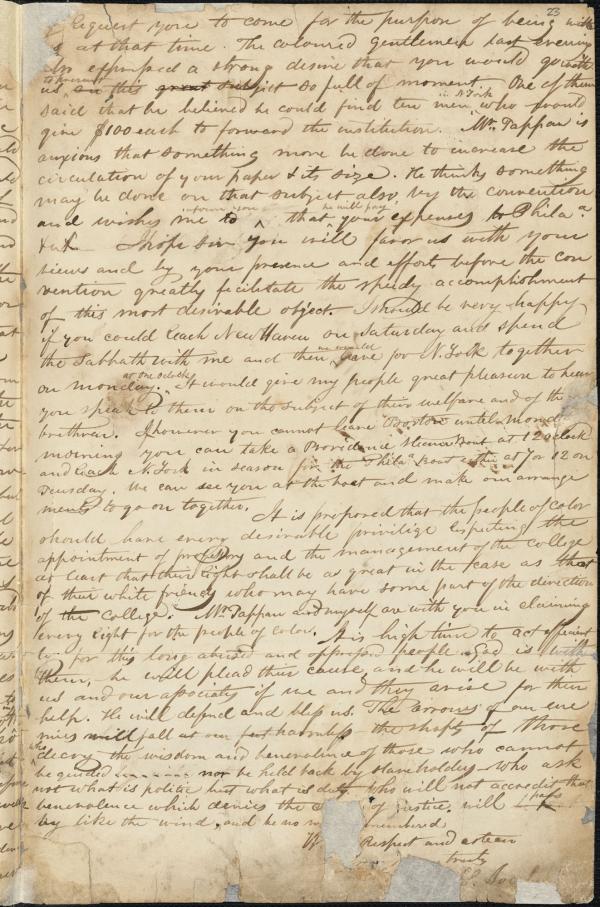 23
request you to come for the purpose of being with
us at that time. The coloured gentlemen last evening
also expressed a strong desire that you would go with
us, on this great subject so full of moment. One of them
in N. York
said that he believed he could find ten men who would
give $100 each to forward the institution. Mr. Tappan is
anxious that something more be done to increase the
circulation of your paper & its size. He thinks something
may be done on that subject also by the convention
inform you he will pay
and wishes me to ^ that your expenses to Phila
I hope Sir you will favor us with your
views and by your presence and efforts before the con
vention greatly facilitate the speedy accomplishment
of this most desirable object. I should be very happy
if you could reach New Haven on Saturday and spend
we would
the Sabbath with me and then leave for N. York together
at one oclock
on monday. It would give my people great pleasure to hear
you speak to them on the subject of their welfare and of the
brethren. If however you cannot leave Boston until Mond
morning you can take a Providence Steam Boat at 12 oclock
and reach N. York in season for the Phila boat either at 7 or 12 on
Tuesday. We can see you at the boat and make our arrange
ments to go on together.
It is proposed that the people of color
should have every desirable privilige respecting the
appointment of professors and the management of the college
at least that their right shall be as great in the case as that
of their white friends who may have some part of the direction
of the college. Mr. Tappan and myself are with you in claiming
every right for the people of color. It is high time to act efficient
ly for this long abused and oppressed people. God is with
them, he will plead their cause and he will be with
us and our associates if we and they arise for their
help. He will defend and bless us. The arrows of our ene
mies will fall at our feet harmless the shafts of those
decry the wisdom and benevolence of those who cannot
be guided nor be held back by slaveholders who ask
not what is politic but what is duty who will not accredit that
pass
benevolence which denies the of justice. will
by like the wind, and be no remembered
Respect and esteem
truly